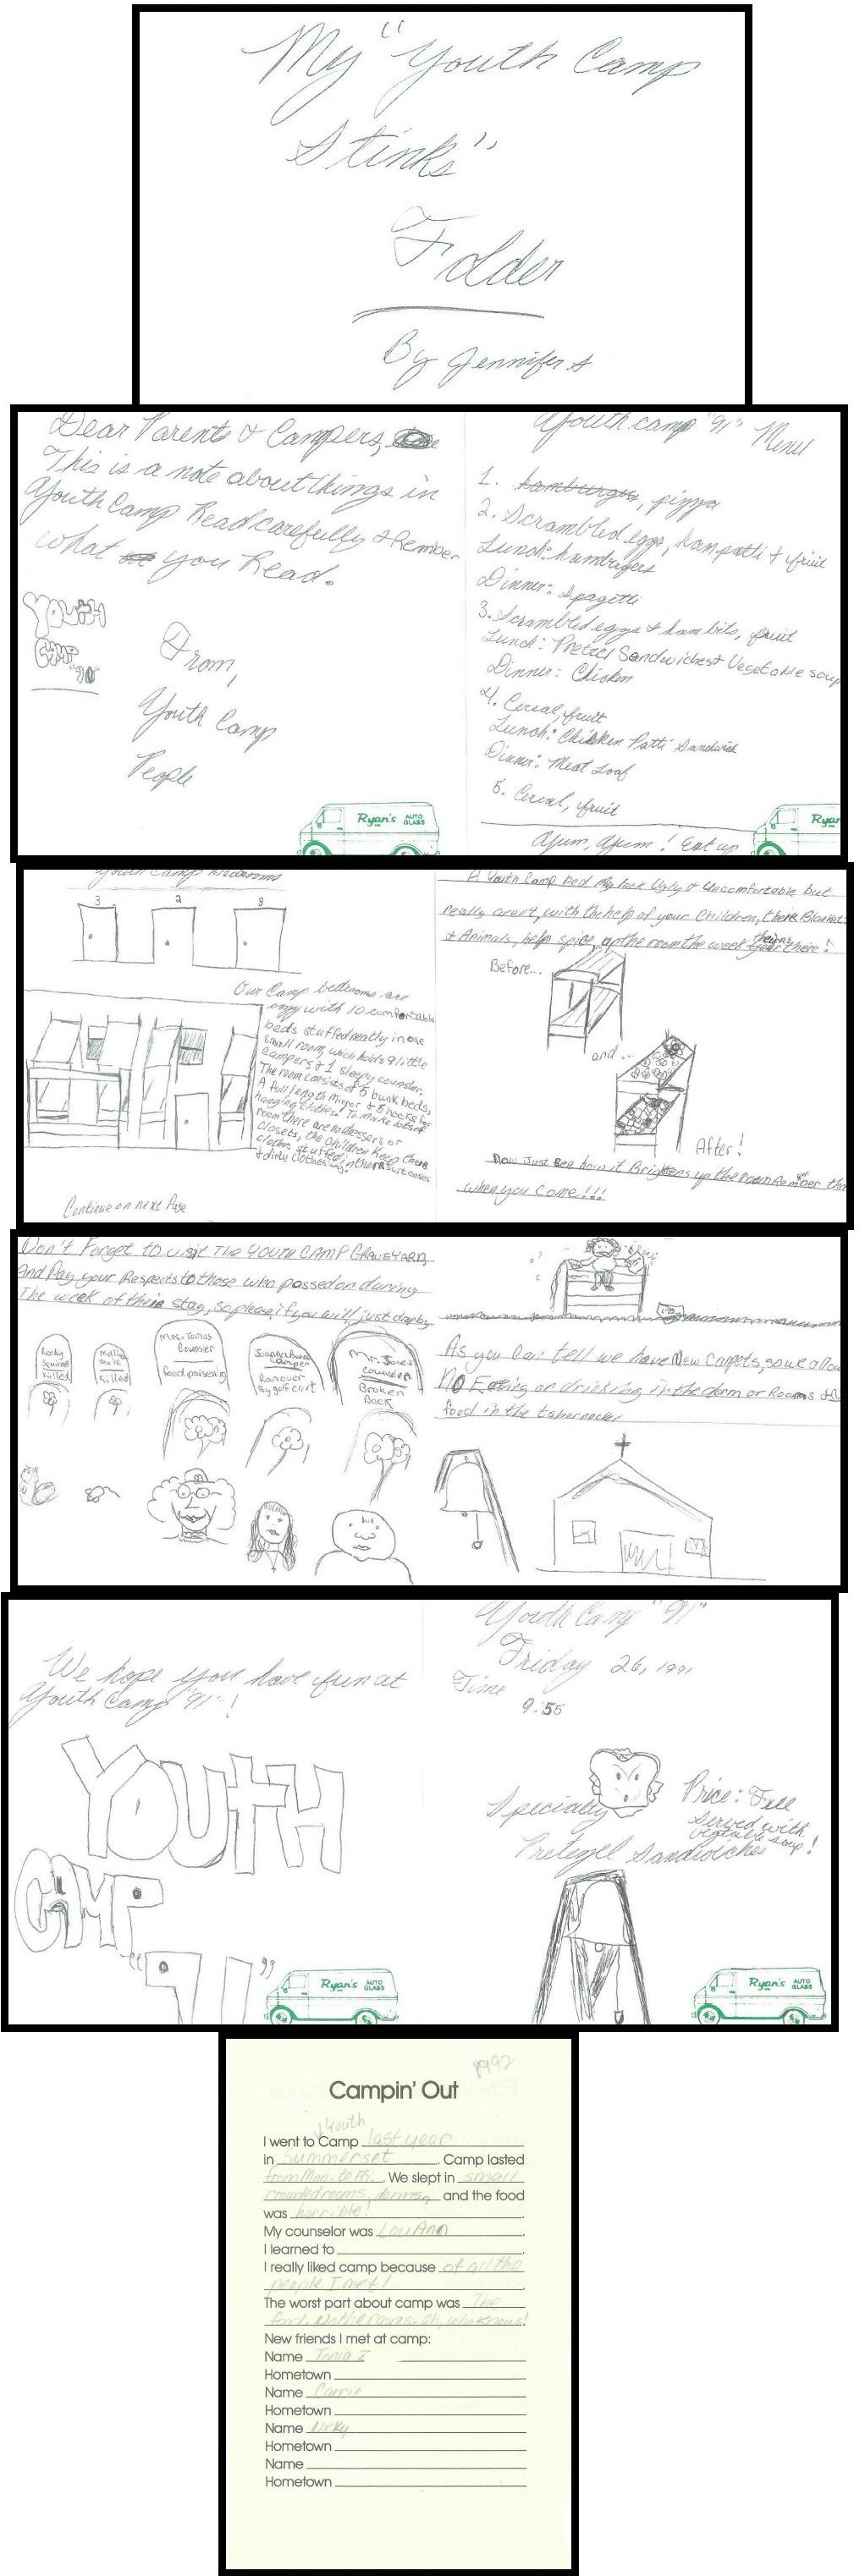 My "Youth Camp
Stinks"
Folder
By Jennifer S
Dear Parents & Campers,
This is a note about things in
Youth Camp Read carefully & Rember
what you Read.
YOUTH
CAMP
"90"
From,
Youth Camp
People
Ryan's AUTO GLASS
Youth camp "91" Menu
1. hamburgers, pizza
2. Scrambled eggs, ham patti & fruit
Lunch: hambragers
Dinner: Spagetti
3. Scrambled eggs & ham bits, fruit
Lunch: Pretzel Sandwiches & Vegetable soup
Dinner: Chicken
4. Cereal, fruit
Lunch: Chicken Patti Sandwich
Dinner: Meat Loaf
5. Cereal, fruit
Yum, Yum! Eat up
Ryan
Youth Camp Bedrooms
3 2 8
Our Camp bedrooms are
cozy with 10 comfortable
beds stuffed neatly in one
small room, wich holds 9 little
campers & 1 sleepy counsler.
The room consists of 5 bunk beds,
A full length mirror & 5 hooks for
hanging clothes. To make lots of
room there are no dessers or
closets, the children keep there
clothes stuffed in there suitcases
& dirtie clothes bag.
Continue on next Page
A Youth Camp bed My look Ugly & Uncomfortable but
really arent, with the help of your Children, there Blankets
& Animals, help spice up the room the week their there!
Before...
and...
After!
Now Just see how it Brightens up the room Remember that
when you come!!!
Don't Forget to visit The YOUTH CAMP GRAVEYARD,
And Pay your Respects to those who passed on during
The week of their stay, So please if you will, just drop by
Rocky
Squirrel
Killed
Mellie
mole
Killed
Mrs. Tomas
Counsler
food poisening
Camper
Ranover
By golf cart
Mr. Jones
Counsler
Broken
Back
As you Can tell we have New Carpets, so we allow
NO Eating or drinking in the dorm or Rooms & No
food in the tabernacle
We hope you have fun at
Youth Camp "91"!
YOUTH
CAMP
"91"
Ryan's AUTO GLASS
Youth Camp "91"
Friday 26, 1991
Time
9:55
Specialty
Pretzel Sandwiches
Price: Free
Served with
vegetable soup!
Ryan's AUTO GLASS
1992
Campin' Out
Youth
I went to Camp last year
in Summerset. Camp lasted
from Mon. to Fri. We slept in small
crowded rooms, dorms, and the food
was horrible!
My counselor was Lou Ann.
I learned to
I really liked camp because of all the
people I met!
The worst part about camp was The
food. No the rooms. Oh, who knows!
New friends I met at camp:
Name Tonia I
Hometown
Name Carrie
Hometown
Name Nicky
Hometown
Name
Hometown